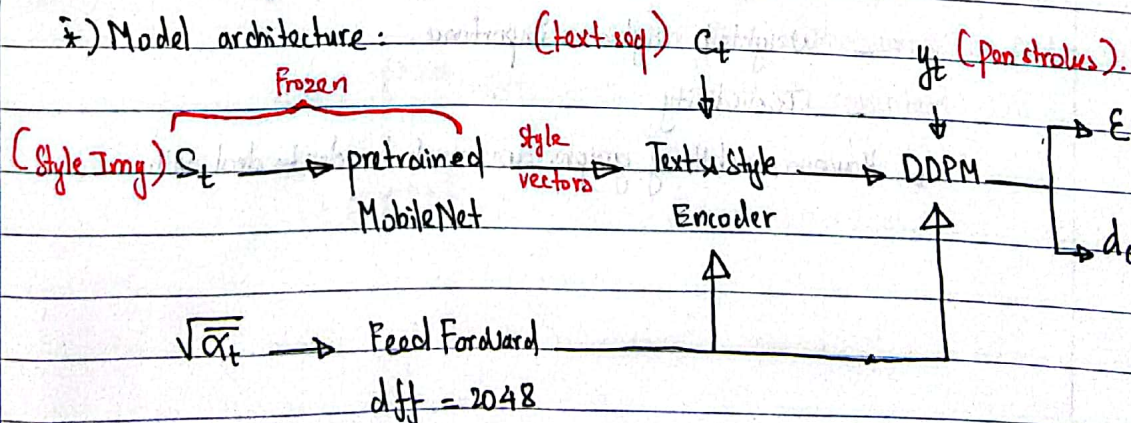 *) Model architecture: (text seq) Ct yt (Pen strokes).
Frozen
(Style Img) St → pretrained MobileNet style vectors → Text & Style Encoder → DDPM → ε
d
√ᾱt → Feed Forward
dff = 2048